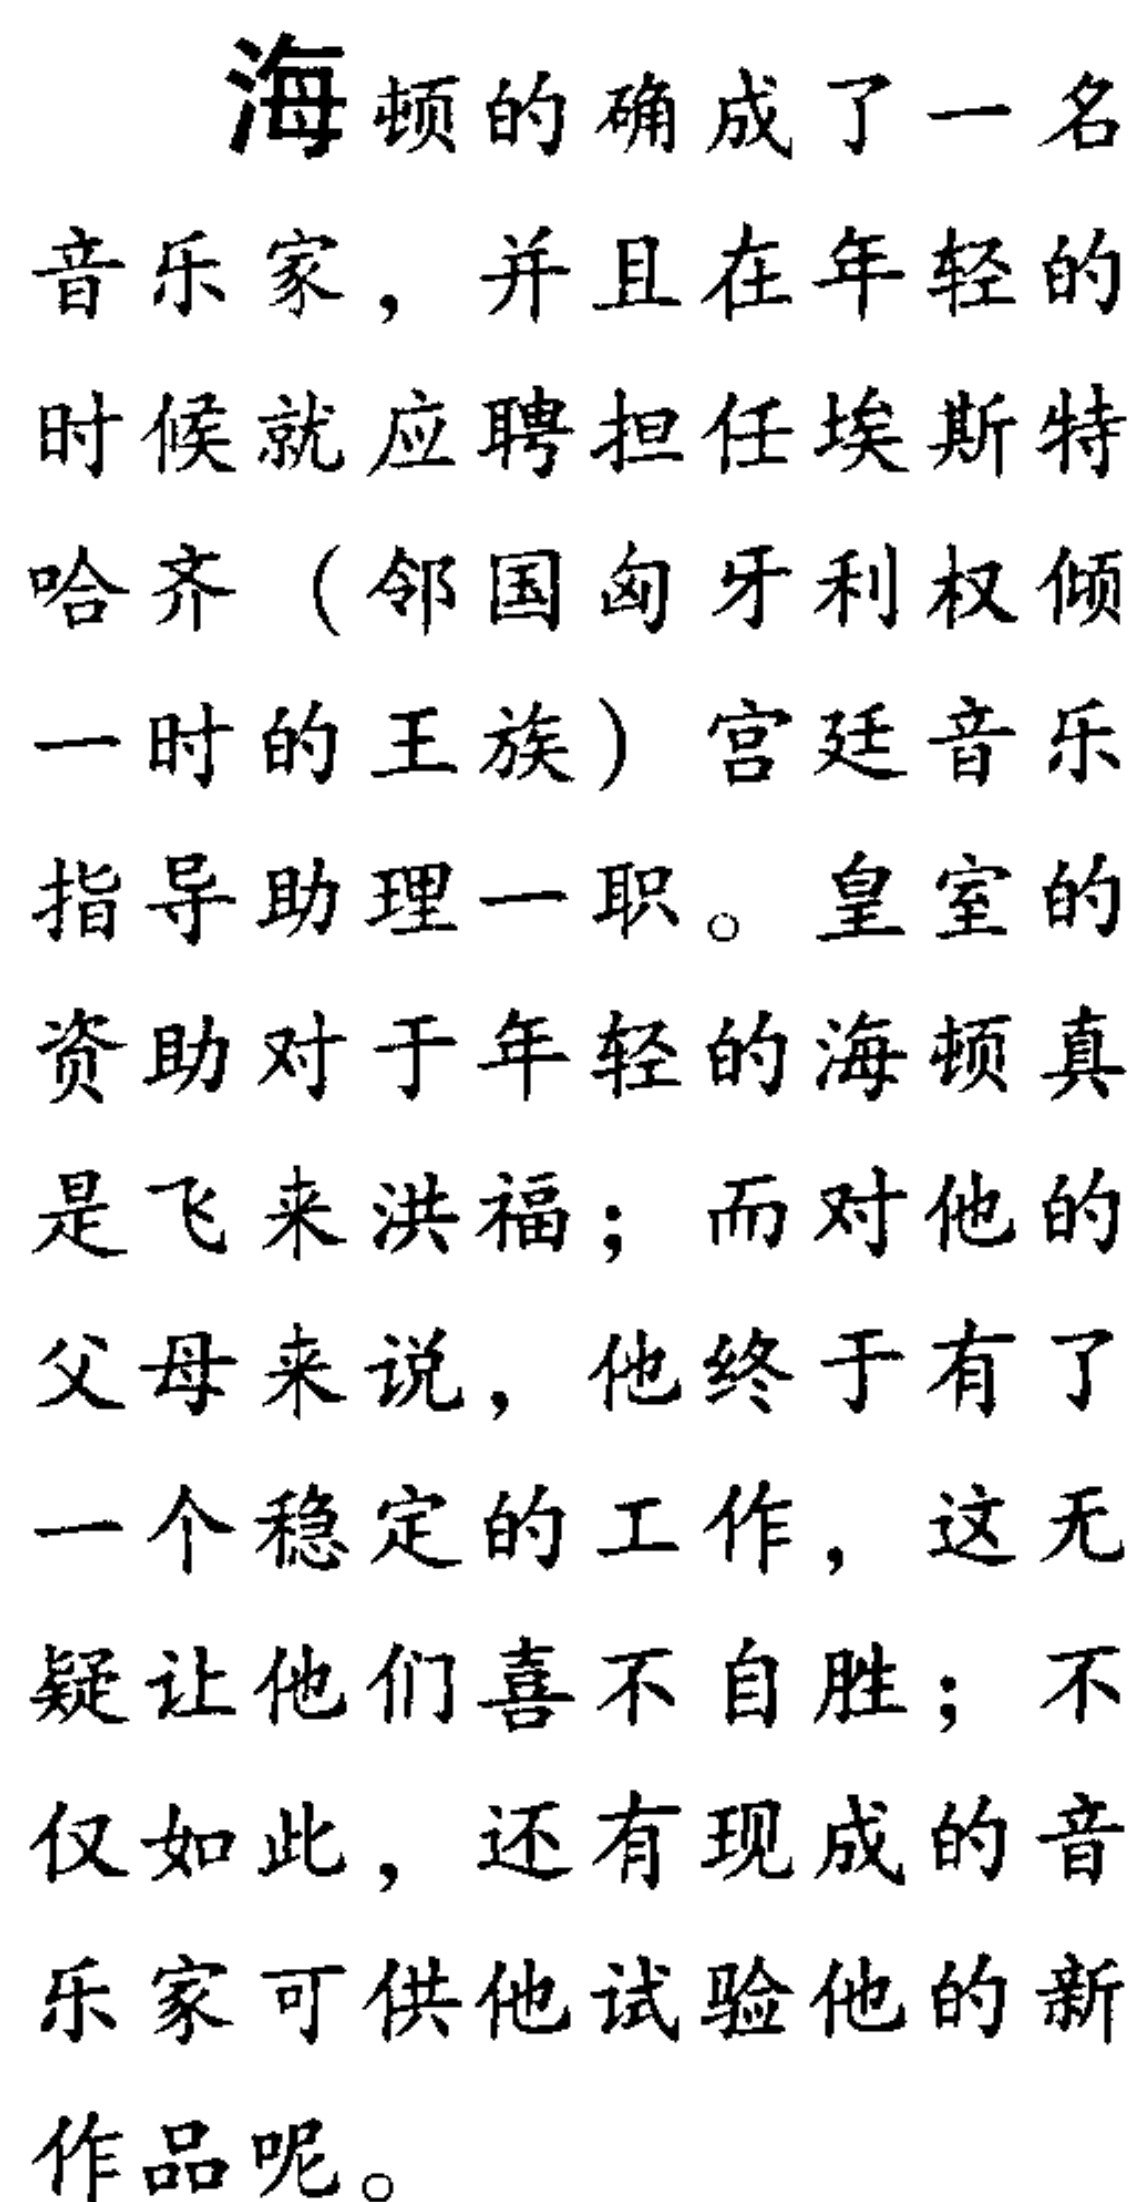 海顿的确成了一名
音乐家，并且在年轻的
时候就应聘担任埃斯特
哈齐（邻国匈牙利权倾
一时的王族）宫廷音乐
指导助理一职。皇室的
资助对于年轻的海顿真
是飞来洪福；而对他的
父母来说，他终于有了
一个稳定的工作，这无
疑让他们喜不自胜；不
仅如此，还有现成的音
乐家可供他试验他的新
作品呢。